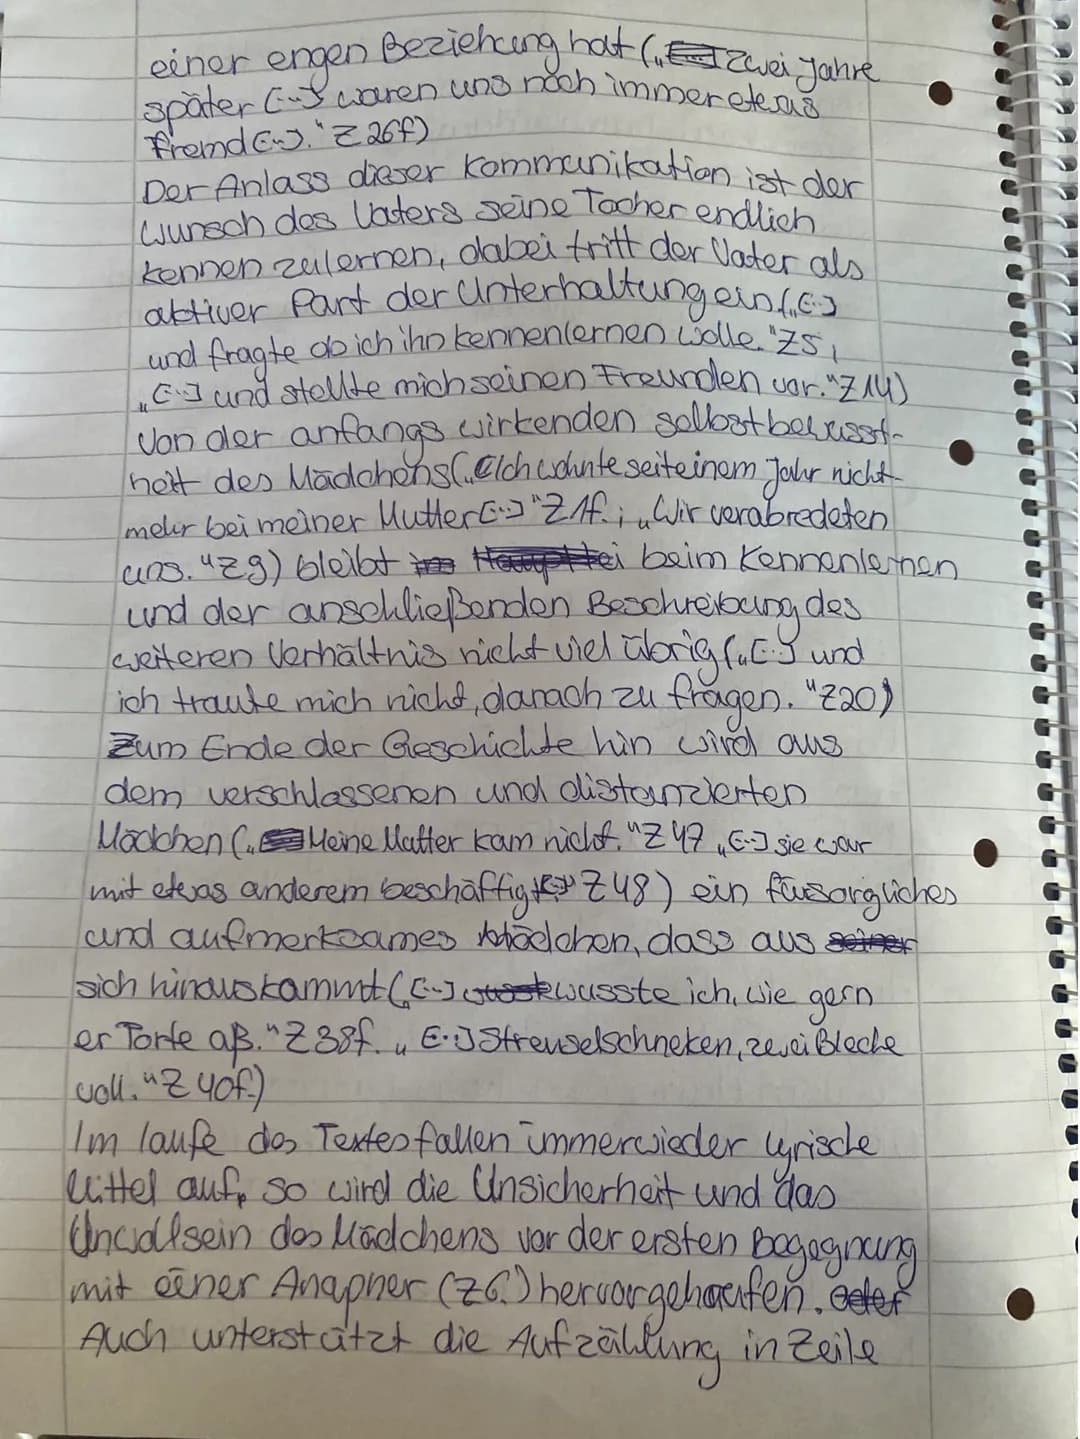 einer engen Beziehung hat („Zwei Jahre
später [...] waren uns noch immer etwas
fremd [...]." Z 26f)
Der Anlass dieser Kommunikation ist der
Wunsch des Vaters seine Tocher endlich
kennen zulernen, dabei tritt der Vater als
aktiver Part der Unterhaltung ein („[...]
und fragte ob ich ihn kennenlernen wolle." Z5,
„[...] und stellte mich seinen Freunden vor." Z14)
Von der anfangs wirkenden selbstbewusst-
heit des Mädchens („Ich wohnte seit einem Jahr nicht
mehr bei meiner Mutter [...]" Z1f.; „Wir verabredeten
uns. "Z9) bleibt beim Kennenlernen
und der anschließenden Beschreibung des
weiteren Verhältnis nicht viel übrig („[...] und
ich traute mich nicht, danach zu fragen. "Z20)
Zum Ende der Geschichte hin wird aus
dem verschlossenen und distanzierten
Mädchen („Meine Mutter kam nicht. "Z47 „[...] sie war
mit etwas anderem beschäftigt" Z48) ein füsorgliches
und aufmerksames Mädchen, dass aus
sich hinauskammt („[...] wusste ich, wie gern
er Torte aß. "Z38f. „[...] Streuselschneken, zwei Bleche
voll. "Z40f.)
Im laufe des Textes fallen immerwieder lyrische
Mittel auf, so wird die Unsicherheit und das
Unwollsein des Mädchens vor der ersten Begegnung
mit einer Anapher (Z6.) hervorgehoufen.
Auch unterstützt die Aufzählung in Zeile